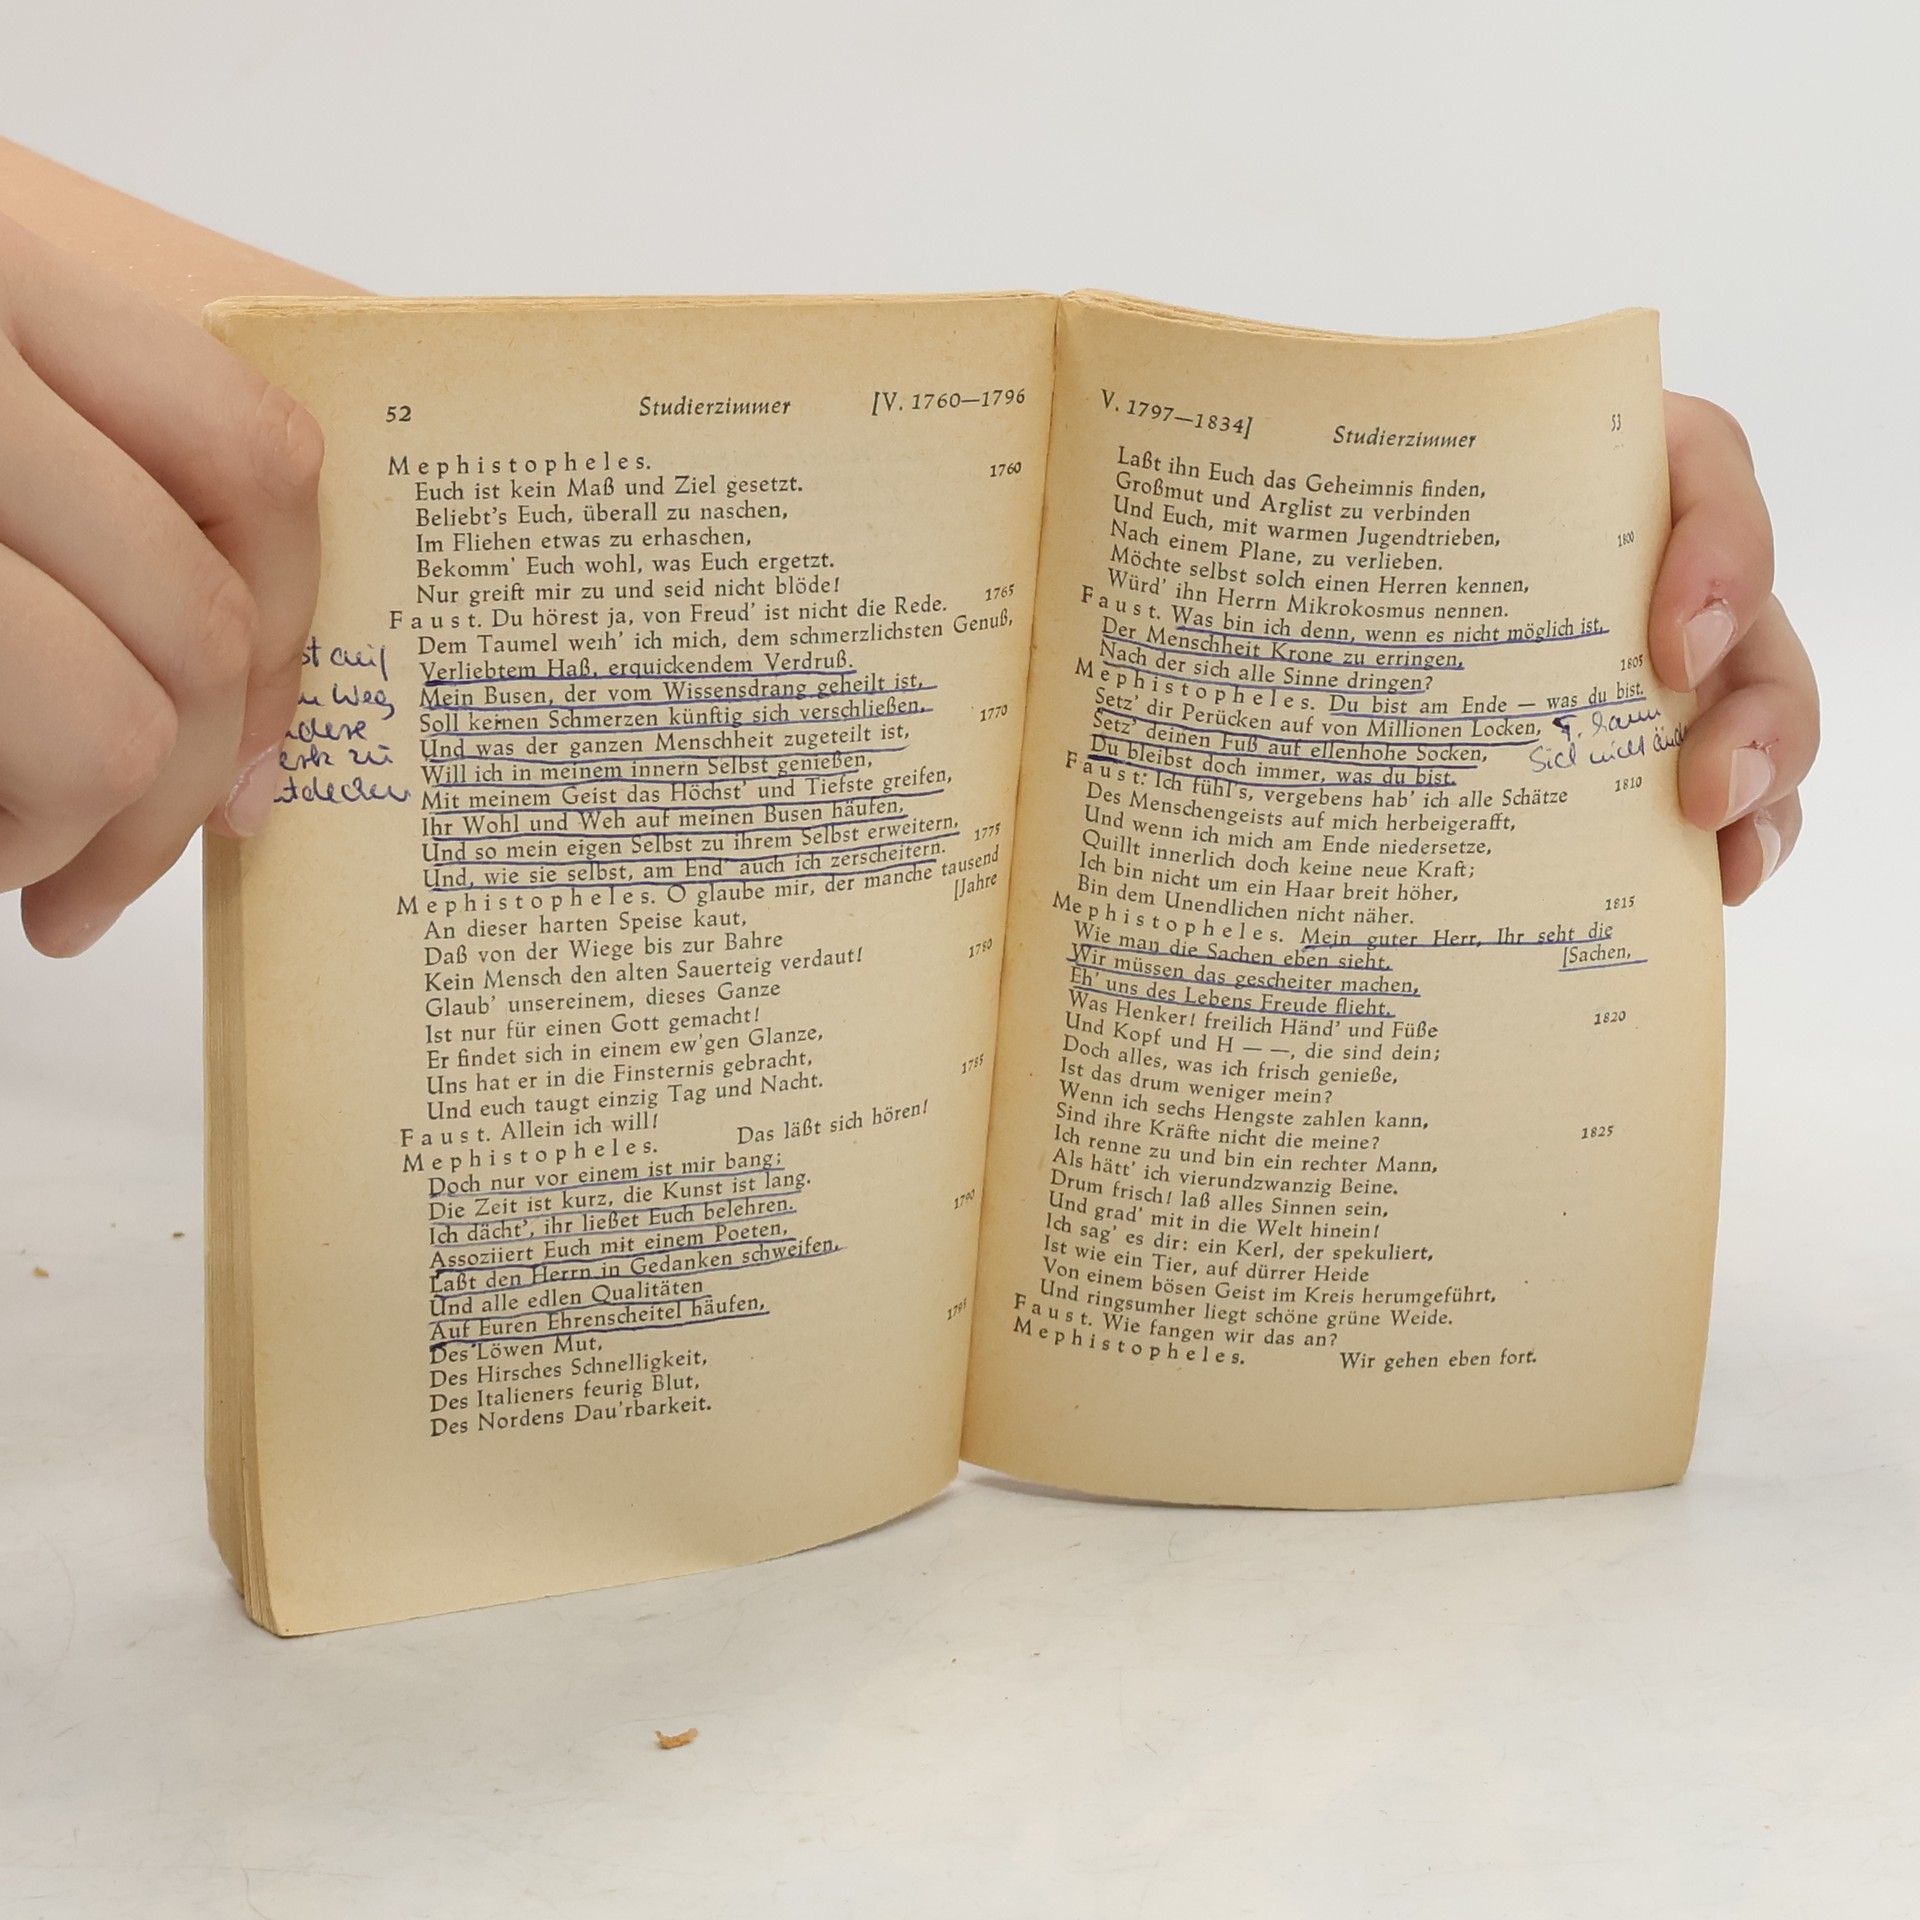 52 Studierzimmer [V. 1760—1796
Mephistopheles.
Euch ist kein Maß und Ziel gesetzt. 1760
Beliebt's Euch, überall zu naschen,
Im Fliehen etwas zu erhaschen,
Bekomm' Euch wohl, was Euch ergetzt.
Nur greift mir zu und seid nicht blöde!
Faust. Du hörest ja, von Freud' ist nicht die Rede. 1765
Dem Taumel weih' ich mich, dem schmerzlichsten Genuß,
Verliebtem Haß, erquickendem Verdruß.
Mein Busen, der vom Wissensdrang geheilt ist,
Soll keinen Schmerzen künftig sich verschließen,
Und was der ganzen Menschheit zugeteilt ist, 1770
Will ich in meinem innern Selbst genießen,
Mit meinem Geist das Höchst' und Tiefste greifen,
Ihr Wohl und Weh auf meinen Busen häufen,
Und so mein eigen Selbst zu ihrem Selbst erweitern,
Und, wie sie selbst, am End' auch ich zerscheitern. 1775
Mephistopheles. O glaube mir, der manche tausend
[Jahre
An dieser harten Speise kaut,
Daß von der Wiege bis zur Bahre
Kein Mensch den alten Sauerteig verdaut!
Glaub' unsereinem, dieses Ganze 1780
Ist nur für einen Gott gemacht!
Er findet sich in einem ew'gen Glanze,
Uns hat er in die Finsternis gebracht,
Und euch taugt einzig Tag und Nacht.
Faust. Allein ich will! 1785
Mephistopheles. Das läßt sich hören!
Doch nur vor einem ist mir bang;
Die Zeit ist kurz, die Kunst ist lang.
Ich dächt', ihr ließet Euch belehren.
Assoziiert Euch mit einem Poeten, 1790
Laßt den Herrn in Gedanken schweifen,
Und alle edlen Qualitäten
Auf Euren Ehrenscheitel häufen,
Des Löwen Mut,
Des Hirsches Schnelligkeit, 1795
Des Italieners feurig Blut,
Des Nordens Dau'rbarkeit.
auf
Weg
zu
V. 1797—1834] Studierzimmer 53
Laßt ihn Euch das Geheimnis finden,
Großmut und Arglist zu verbinden
Und Euch, mit warmen Jugendtrieben,
Nach einem Plane, zu verlieben. 1800
Möchte selbst solch einen Herren kennen,
Würd' ihn Herrn Mikrokosmus nennen.
Faust. Was bin ich denn, wenn es nicht möglich ist,
Der Menschheit Krone zu erringen,
Nach der sich alle Sinne dringen? 1805
Mephistopheles. Du bist am Ende — was du bist.
Setz' dir Perücken auf von Millionen Locken,
Setz' deinen Fuß auf ellenhohe Socken,
Du bleibst doch immer, was du bist.
F. kann
sich nicht
Faust: Ich fühl's, vergebens hab' ich alle Schätze 1810
Des Menschengeists auf mich herbeigerafft,
Und wenn ich mich am Ende niedersetze,
Quillt innerlich doch keine neue Kraft;
Ich bin nicht um ein Haar breit höher,
Bin dem Unendlichen nicht näher. 1815
Mephistopheles. Mein guter Herr, Ihr seht die
[Sachen,
Wie man die Sachen eben sieht.
Wir müssen das gescheiter machen,
Eh' uns des Lebens Freude flieht.
Was Henker! freilich Händ' und Füße 1820
Und Kopf und H — —, die sind dein;
Doch alles, was ich frisch genieße,
Ist das drum weniger mein?
Wenn ich sechs Hengste zahlen kann,
Sind ihre Kräfte nicht die meine? 1825
Ich renne zu und bin ein rechter Mann,
Als hätt' ich vierundzwanzig Beine.
Drum frisch! laß alles Sinnen sein,
Und grad' mit in die Welt hinein!
Ich sag' es dir: ein Kerl, der spekuliert,
Ist wie ein Tier, auf dürrer Heide
Von einem bösen Geist im Kreis herumgeführt,
Und ringsumher liegt schöne grüne Weide.
Faust. Wie fangen wir das an?
Mephistopheles. Wir gehen eben fort.